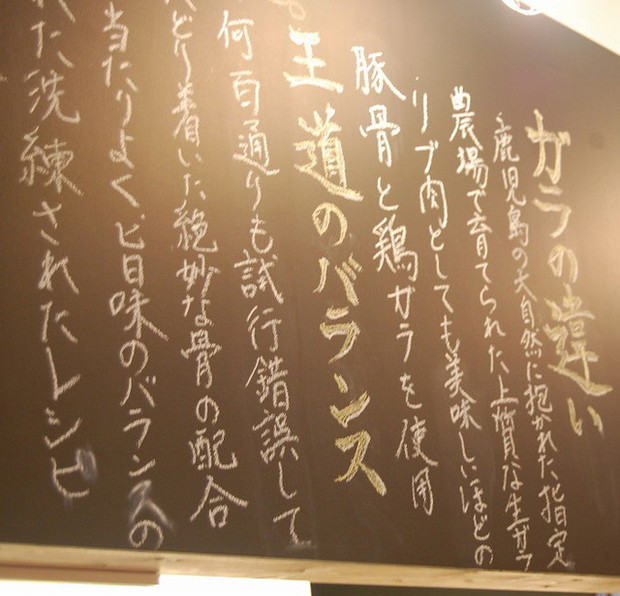 ガラの違い
鹿児島の大自然に抱かれた、指定
農場で育てられた上質な生ガラ
リブ肉としても美味しいほどの
豚骨と鶏ガラを使用
王道のバランス
何百通りも試行錯誤して
どり着いた絶妙な骨の配合
当たりよく、旨味のバランスの
れた洗練されたレシピ